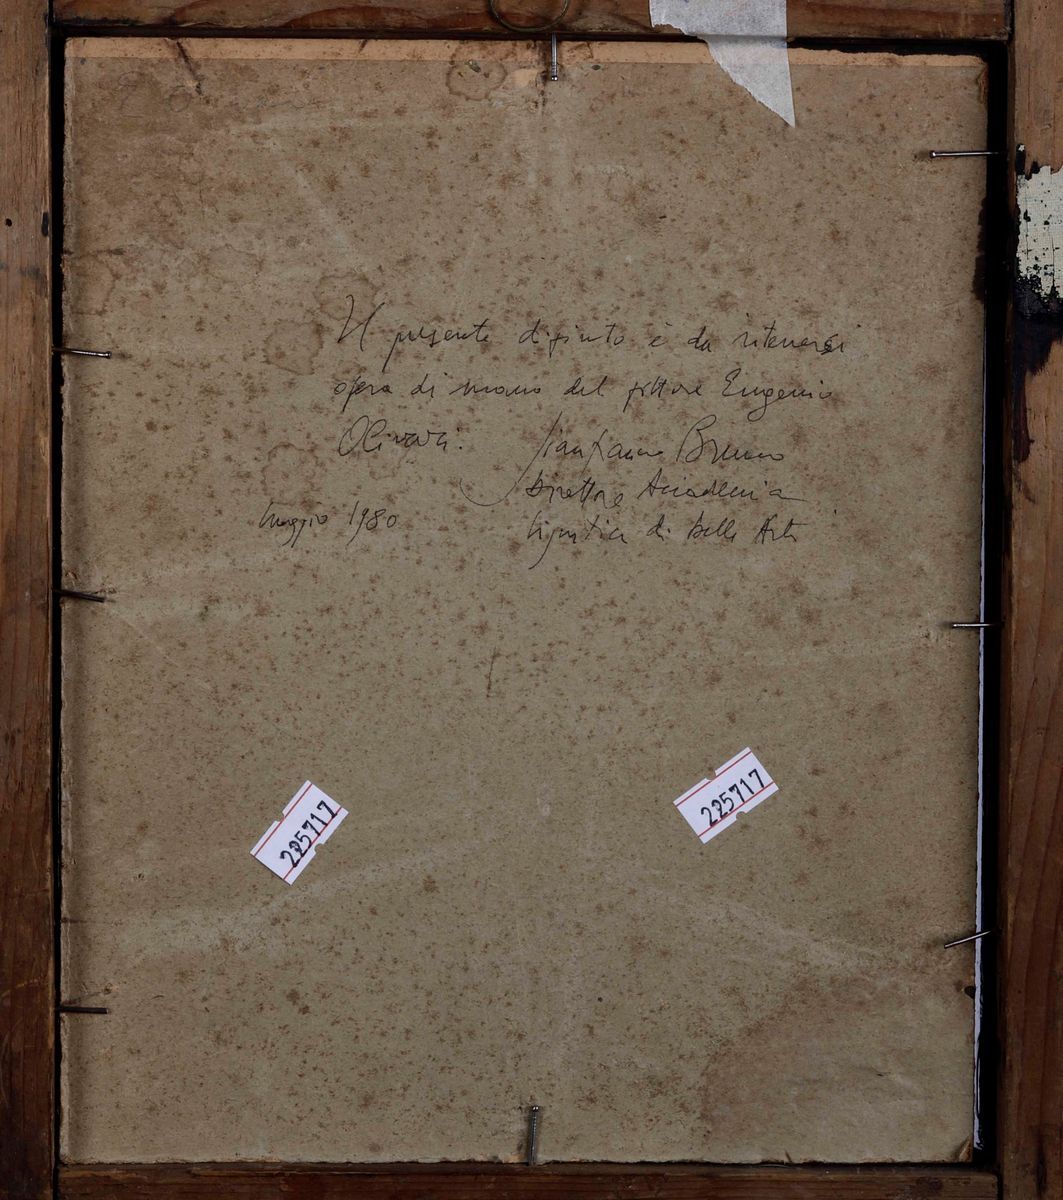 Il presente dipinto è da ritenersi
opera di mano del pittore Eugenio
Olivari. Gianfranco Bruno
Direttore Accademia
Maggio 1980 Ligustica di Belle Arti
225717
225717